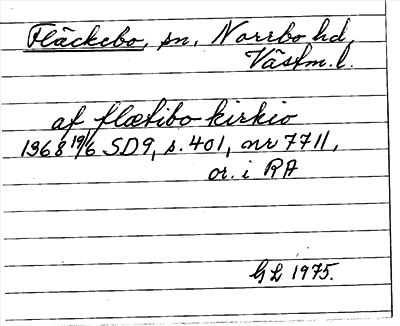 Fläckebo, sn, Norrbo hd,
Västm. l.
af flætibo kirkio
1368 19/6 SD9, s. 401, nr 7711,
or. i RA
GL 1975.